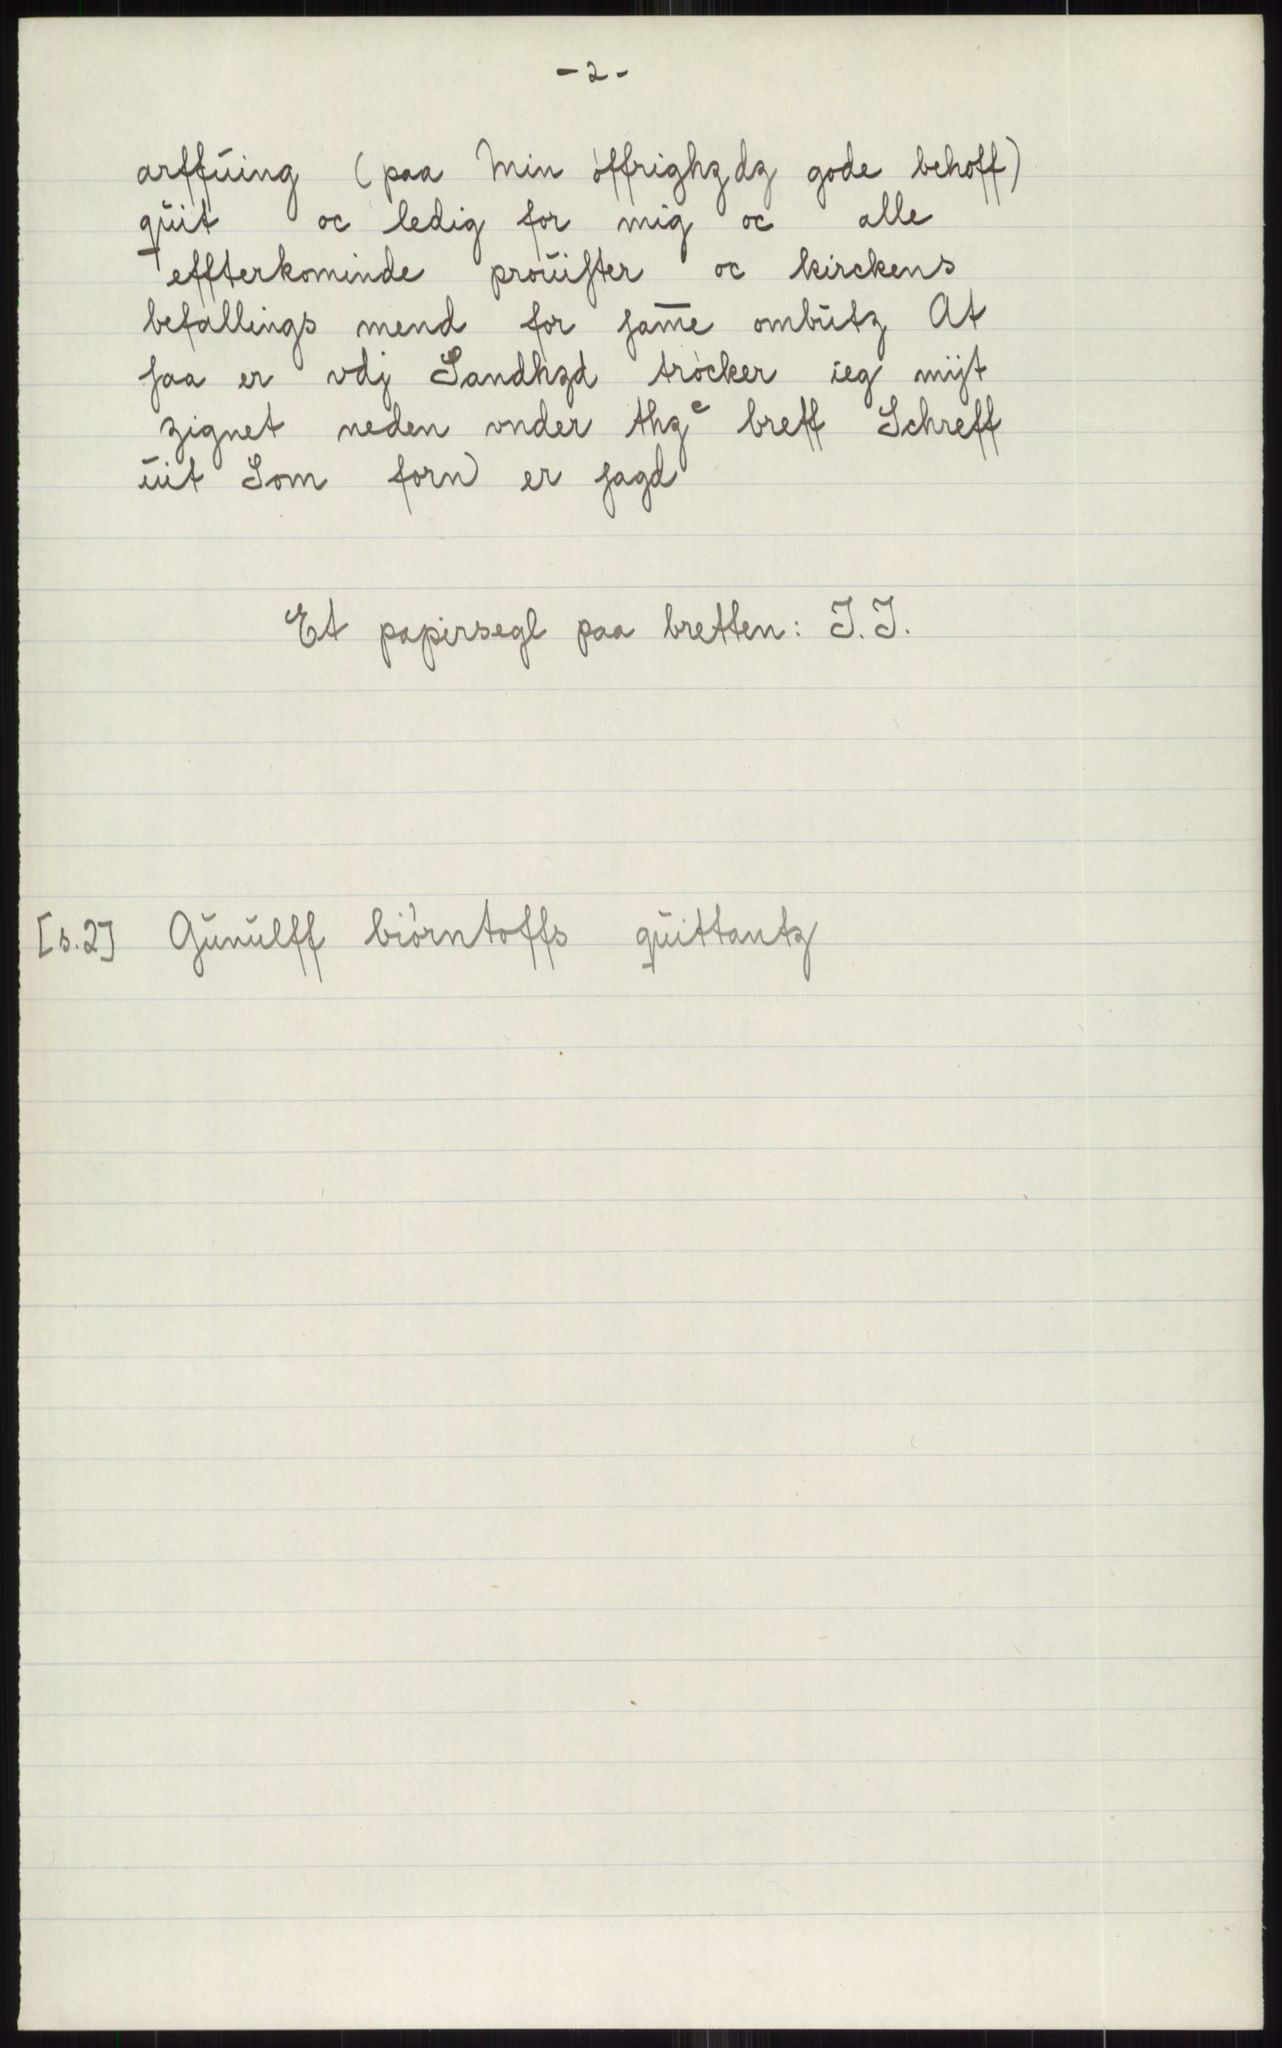 - 2 -
arffūing (paa Min öffrighzdz gode behoff)
qūit oc ledig for mig oc alle
effterkominde proūiſter oc kirckens
befallings mend for ſam̅e ombūtz At
ſaa er vdj Sandhzd trȯcker ieg mijt
zignet neden vnder thzᵉ breff Schreff
ūit Som forn) er ſagd
Et papirsegl paa bretten: J. J.
[s.2] Gūnūlff biȯrntoffs qūittantz